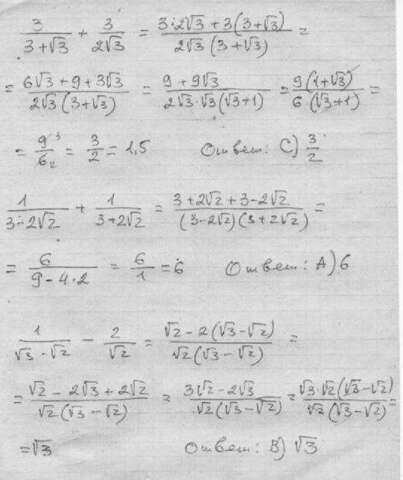 3/(3+√3) + 3/(2√3) = (3·2√3+3(3+√3))/(2√3(3+√3)) =
= (6√3+9+3√3)/(2√3(3+√3)) = (9+9√3)/(2√3·√3(√3+1)) = 9(1+√3)/6(√3+1) =
= 9³/6₂ = 3/2 = 1,5 Ответ: C) 3/2
1/(3-2√2) + 1/(3+2√2) = (3+2√2+3-2√2)/((3-2√2)(3+2√2)) =
= 6/(9-4·2) = 6/1 = 6 Ответ: A) 6
1/(√3-√2) - 2/√2 = (√2-2(√3-√2))/(√2(√3-√2)) =
= (√2-2√3+2√2)/(√2(√3-√2)) = (3√2-2√3)/(√2(√3-√2)) = (√3·√2(√3-√2))/(√2(√3-√2)) =
= √3 Ответ: B) √3